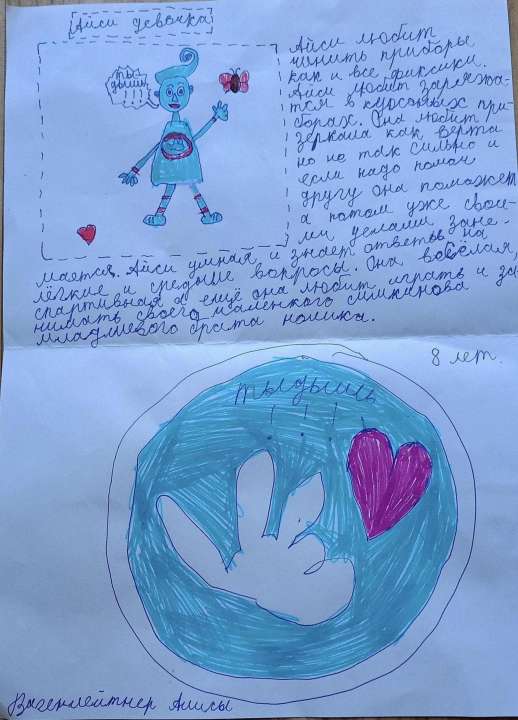 Айси девочка
ты
дышь
! ! !
Айси любит
чинить приборы
как и все фиксики.
Айси любит заряжа-
тся в курсовых при-
борах. Она любит
зеркала как верта
но не так сильно и
если надо помоч
другу она поможет
а потом уже свои-
ми делами зане-
мается. Айси умная и знает ответы на
лёгкие и средные вопросы. Она весёлая,
спартивная а ещё она любит играть и за
нимать своего маленького
младшевого брата нолика.
8 лет.
тыдышь
! ! ! !
Вагенлейтнер Алисы